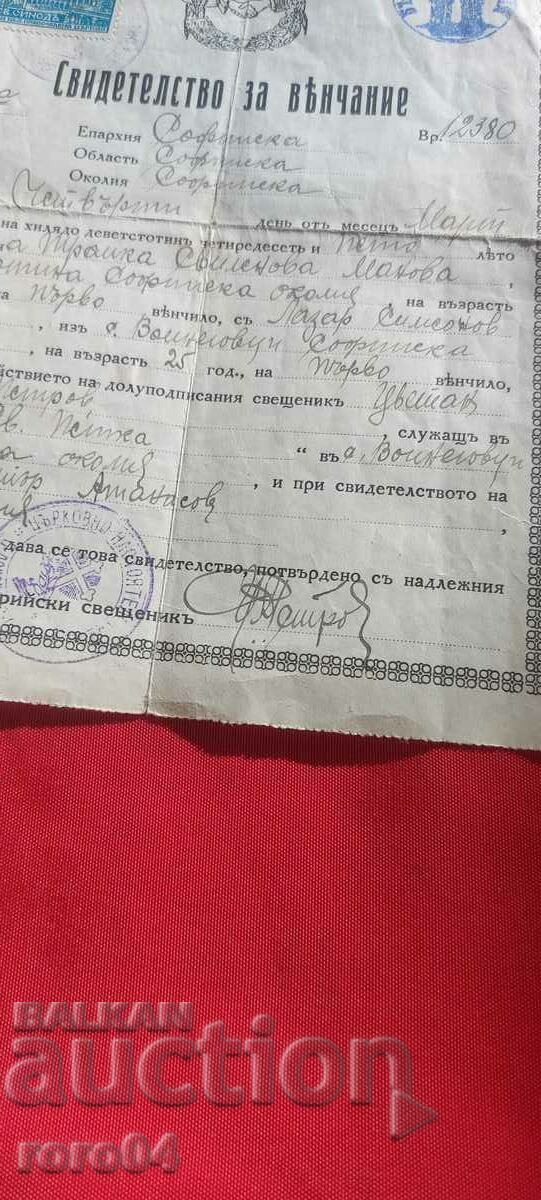 В. СИНОДЪ
Свидетелство за вѣнчание
Епархия Софийска Вр. 12380
Область Софийска
Околия Софийска
Четвърти день отъ месецъ Мартъ
на хилядо деветстотинъ четиридесеть и пето лѣто
Трайка Свиленова Манова,
Софийска околия, на възрасть
на Първо вѣнчило, съ Лазар Симеонов
, изъ с. Войнеговци Софийска
, на възрасть 25 год., на Първо вѣнчило,
йствието на долуподписания свещеникъ Цветан
Петров, служащъ въ
Св. Петка " въ с. Войнеговци
околия
Атанасов, и при свидетелството на
,
дава се това свидетелство, потвърдено съ надлежния
рийски свещеникъ Петров
ЦЪРКОВНО НАСТОЯТЕ
BALKAN
auction
roro04